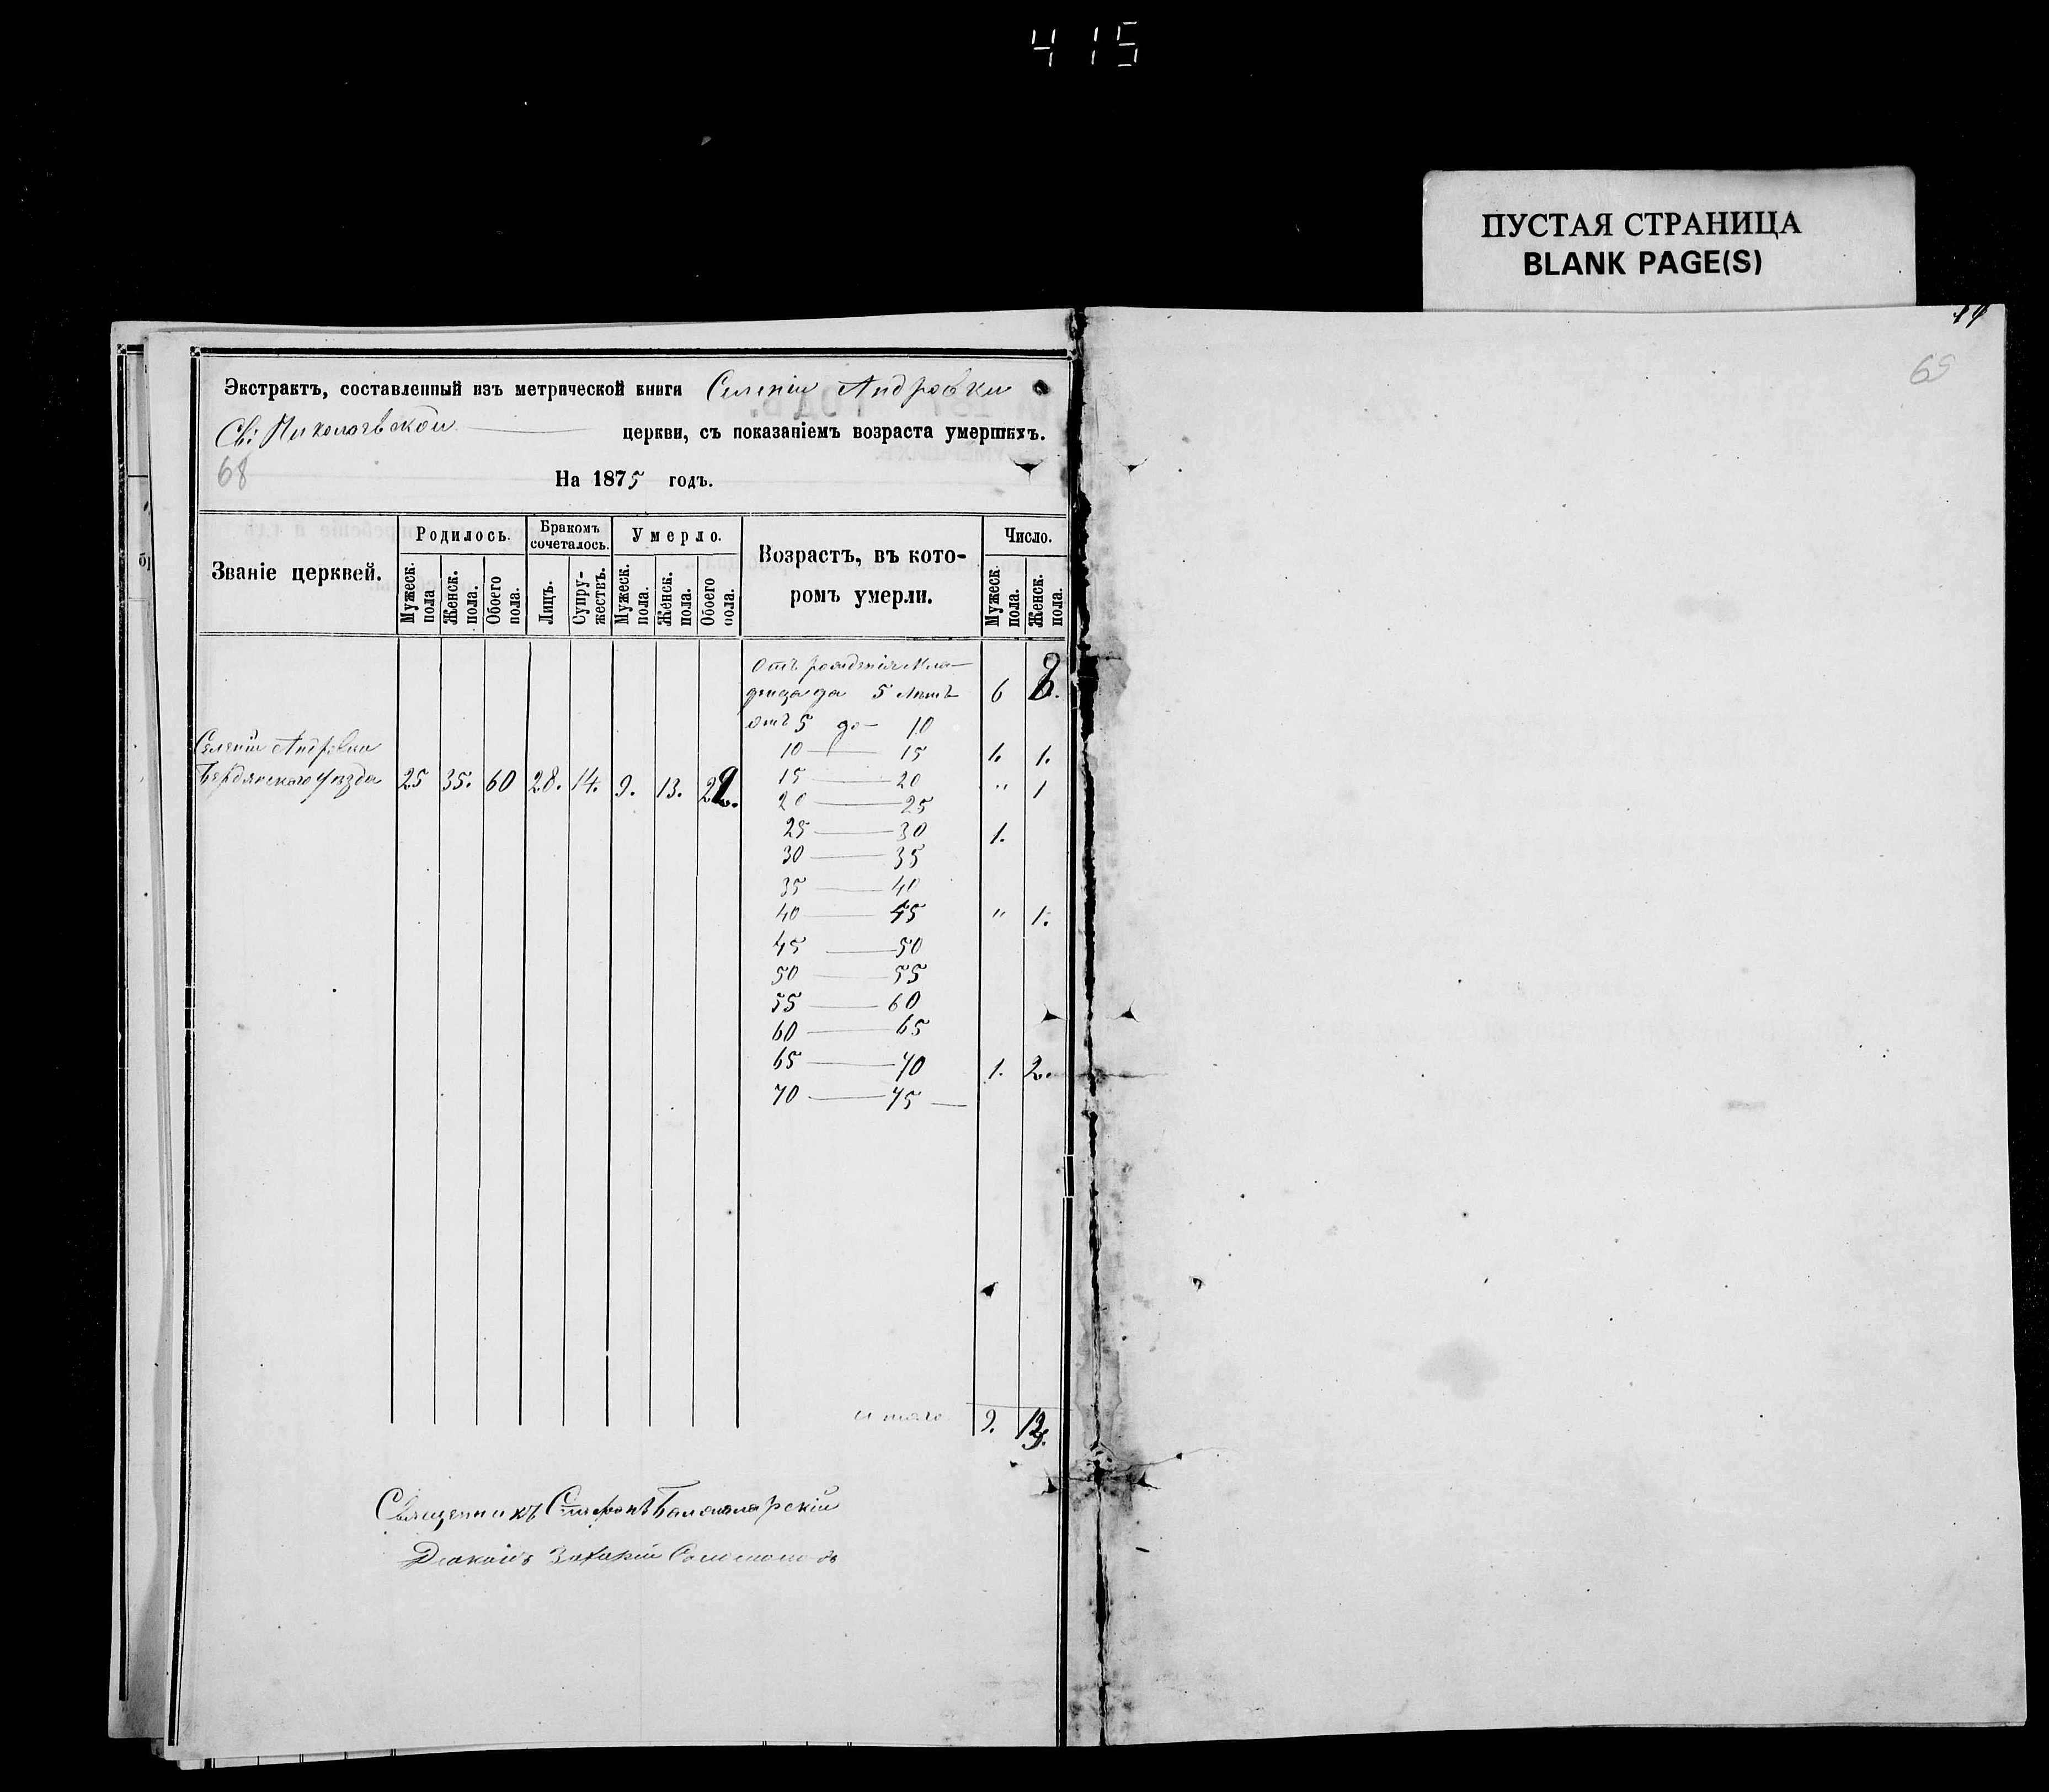 415
ПУСТАЯ СТРАНИЦА
BLANK PAGE(S)
14
69
Экстрактъ, составленный изъ метрической книги Селенія Андровки
Св: Николаевской церкви, съ показаніемъ возраста умершихъ.
68
На 1875 годъ.
Званіе церквей.
Родилось.
Бракомъ сочеталось.
Умерло.
Возрастъ, въ кото-
ромъ умерли.
Число.
Мужеск. пола
Женск. пола.
Обоего пола.
Лицъ.
Супру-жествъ.
Мужеск. пола.
Женск. пола.
Обоего пола.
Мужеск. пола.
Женск. пола.
Отъ рожденія мла-
денца до 5 лѣтъ 6 8.
отъ 5 до 10
10 — 15 1. 1.
15 — 20 " 1
20 — 25
25 — 30 1.
30 — 35
35 — 40
40 — 45 " 1.
45 — 50
50 — 55
55 — 60
60 — 65
65 — 70 1. 2.
70 — 75 —
Селенія Андровки
Бердянского уѣзда 25 35. 60 28. 14. 9. 13. 22.
итого 9. 13.
Священникъ Стефанъ
Діаконъ Захарій